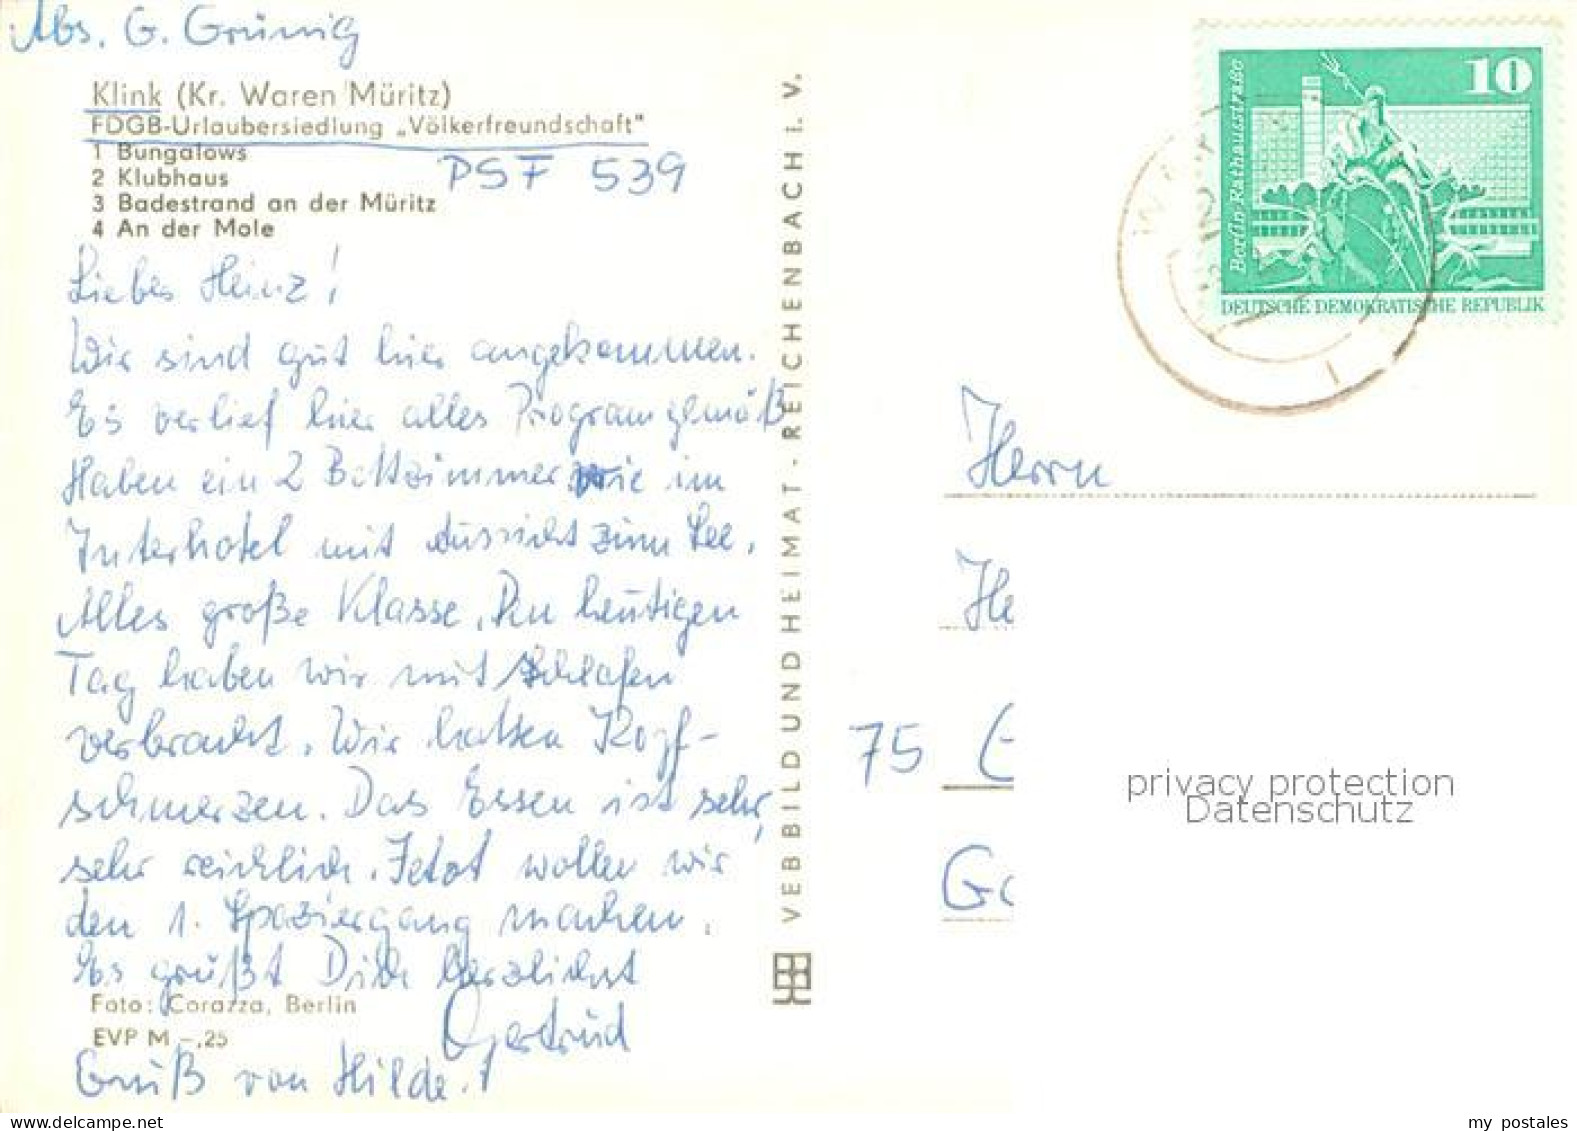 Abs. G. Grünig
Klink (Kr. Waren Müritz)
FDGB-Urlaubersiedlung „Völkerfreundschaft"
PSF 539
1 Bungalows
2 Klubhaus
3 Badestrand an der Müritz
4 An der Mole
Liebes Heinz!
Wir sind gut hier angekommen.
Es verlief hier alles Programgemäß
Haben ein 2 Bettzimmer wie im
Interhotel mit Aussicht zum See.
Alles große Klasse. Den heutigen
Tag haben wir mit Schlafen
verbracht. Wir hatten Kopf-
schmerzen. Das Essen ist sehr,
sehr reichlich. Jetzt wollen wir
den 1. Spaziergang machen.
Es grüßt Dich herzlichst
Gertrud
Foto: Corazza, Berlin
EVP M –,25
Gruß von Hilde!
VEB BILD UND HEIMAT · REICHENBACH i. V.
10
Berlin-Rathausstraße
DEUTSCHE DEMOKRATISCHE REPUBLIK
Herrn
He
75
Ga
privacy protection
Datenschutz
my postales